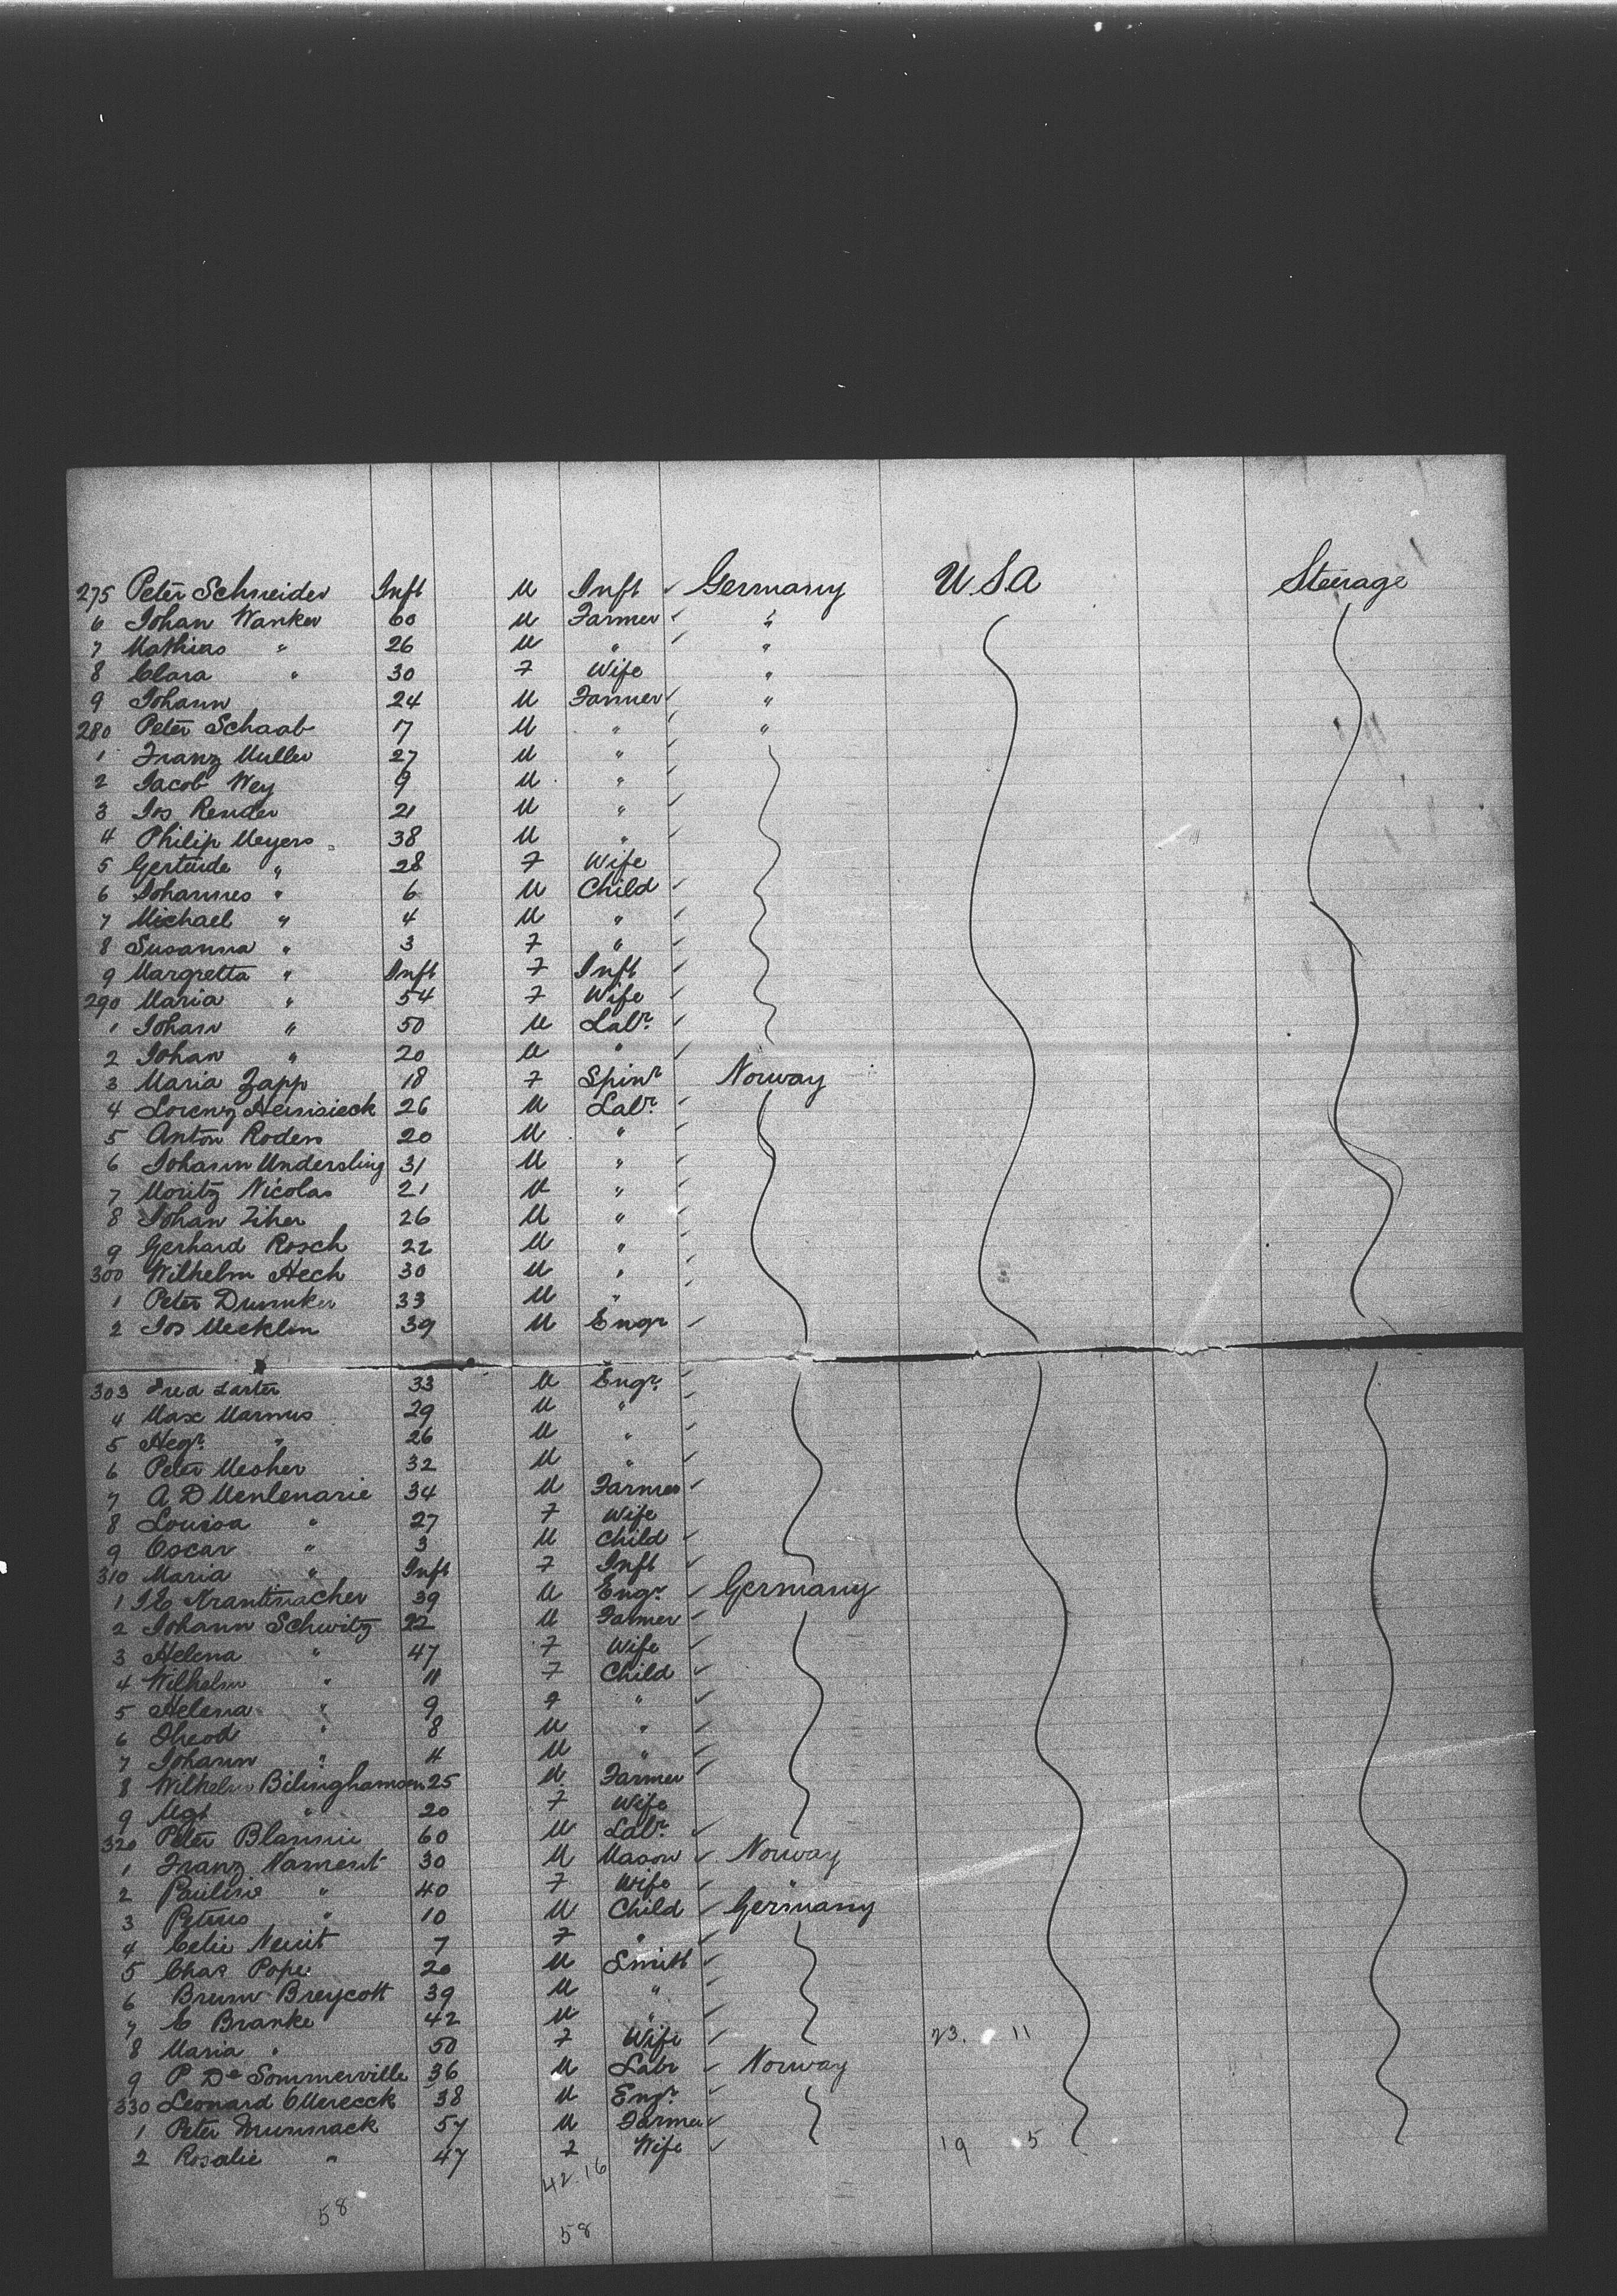 275 Peter Schneider Inft M Inft Germany U.S.A Steerage
6 Johan Wanker 60 M Farmer "
7 Mathias " 26 M " "
8 Clara " 30 F Wife "
9 Johann 24 M Farmer "
280 Peter Schaab 17 M " "
1 Franz Muller 27 M "
2 Jacob Wey 9 M "
3 Jos Render 21 M "
4 Philip Meyers 38 M "
5 Gertude " 28 F Wife
6 Johannes " 6 M Child
7 Michael " 4 M "
8 Susanna " 3 F "
9 Margretta " Inft F Inft
290 Maria " 54 F Wife
1 Johan " 50 M Labr
2 Johan " 20 M "
3 Maria Zapp 18 F Spinr Norway
4 Lorenz 26 M Labr
5 Anton Roden 20 M "
6 Johann Undersling 31 M "
7 Moritz Nicolas 21 M "
8 Johan Ziher 26 M "
9 Gerhard Rosch 22 M "
300 Wilhelm Hech 30 M "
1 Peter Dumker 33 M "
2 Jos Mecklin 39 M Engr
303 Fred Larter 33 M Engr
4 Max Marmus 29 M "
5 Hegr " 26 M "
6 Peter Mesher 32 M "
7 A D Menlenarie 34 M Farmer
8 Louisa " 27 F Wife
9 Oscar " 3 M Child
310 Maria " Inft F Inft
1 39 M Engr Germany
2 Johann Schwitz 22 M Farmer
3 Helena " 47 F Wife
4 Wilhelm " 11 F Child
5 Helena " 9 F "
6 Theod " 8 M "
7 Johann " 4 M "
8 Wilhelm Bilinghamson 25 M Farmer
9 Mgt " 20 F Wife
320 Peter 60 M Labr
1 Franz Nament 30 M Mason Norway
2 Pauline " 40 F Wife "
3 Petrus " 10 M Child Germany
4 Celie 7 F "
5 Chas Pope 20 M Smith
6 Breycott 39 M "
7 C Branke 42 M "
8 Maria " 50 F Wife 23. 11
9 P De Sommerville 36 M Labr Norway
330 Leonard 38 M Engr
1 Peter Mummack 57 M Farmer
2 Rosalie " 47 F Wife 19 5
42.16
58
58